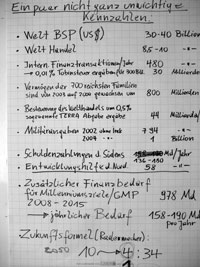 Ein paar nicht ganz unwichtige
Kennzahlen.
• Welt BSP (US$) 30-40 Billion
• Welt Handel 8,5-10 -"-
• Intern. Finanztransaktionen/Jahr 480 -"-
→ 0,01% Tobinsteuer ergäben für 30 Mrd. 30 Milliarden
• Vermögen der 700 reichsten Familien
sind von 2003 auf 2004 gewachsen um 800 Milliarden
• Besteuerung des Welthandels um 0,5%
sogenannte TERRA Abgabe ergäbe 44 Milliarden
• Militärausgaben 2002 ohne Irak 794 -"-
2004 1 Billion
• Schuldenzahlungen d. Südens 136-150 Md/Jahr
• Entwicklungshilfe d. Nord. 58 -"-
• Zusätzlicher Finanzbedarf
für Millenniumsziele/GMP 978 Md
2008-2015
→ jährlicher Bedarf 158-190 Md
pro Jahr
Zukunftsformel (Radermacher):
2050 10 → 4:34